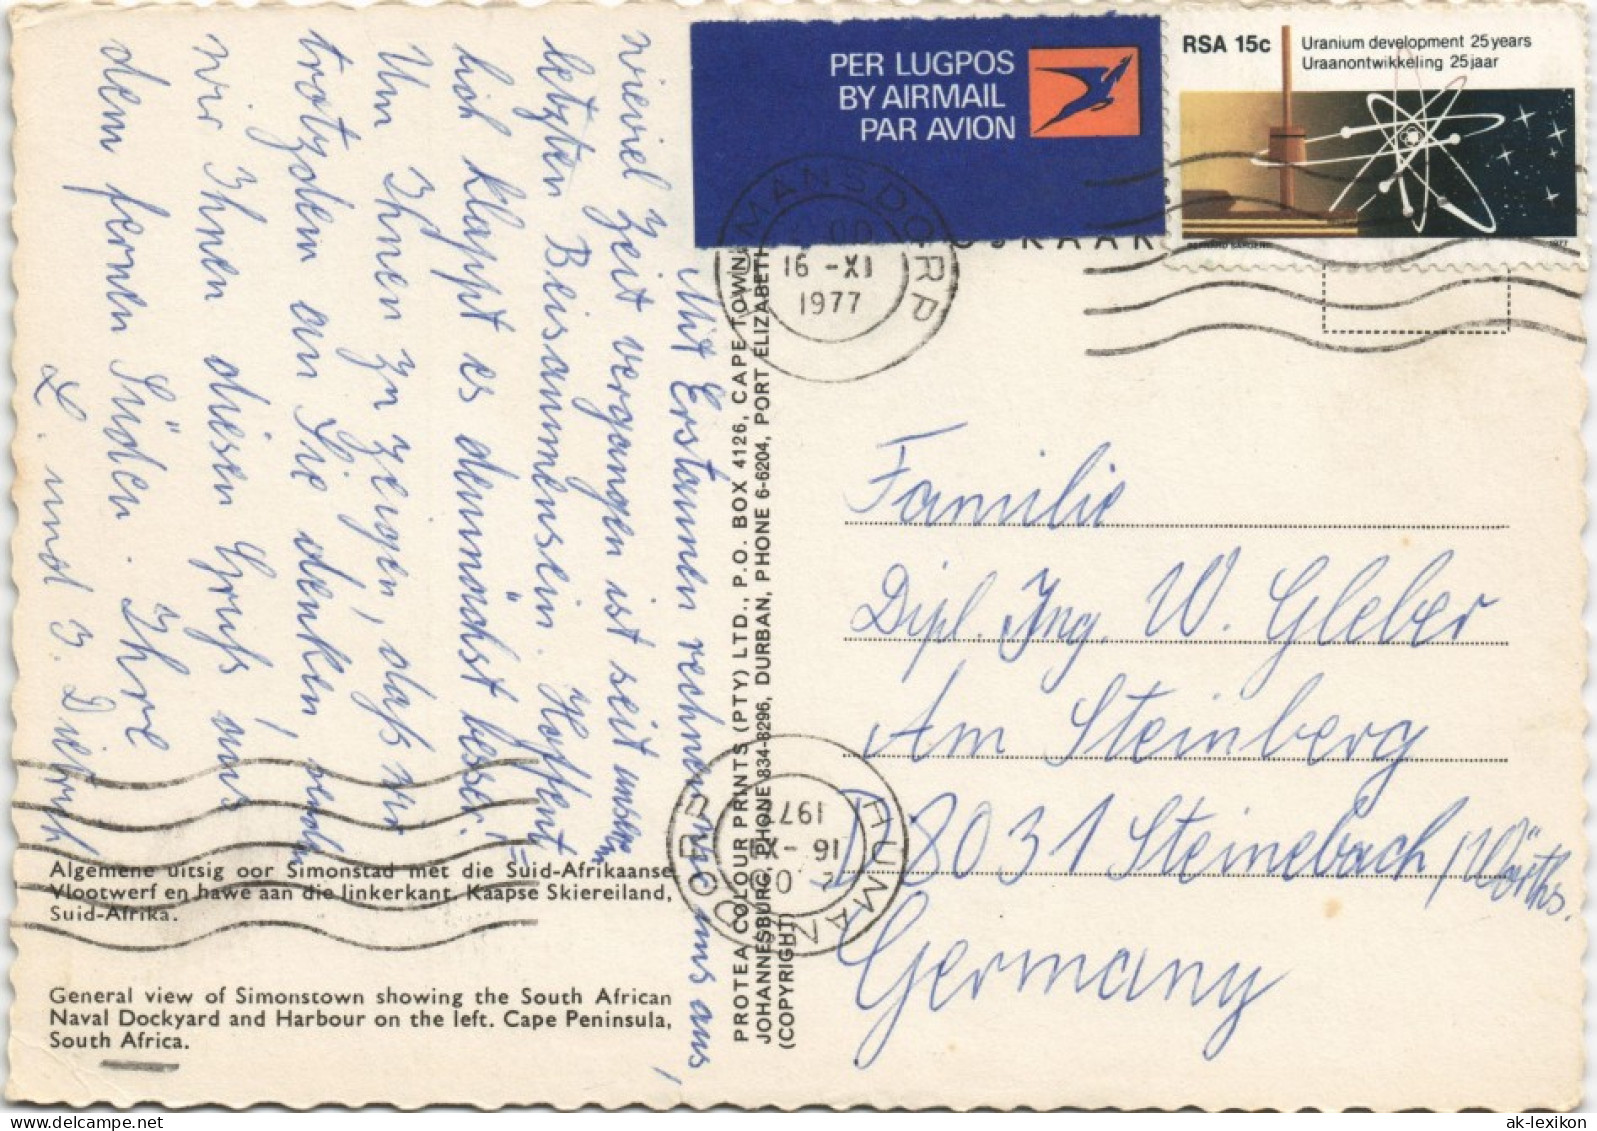 PER LUGPOS
BY AIRMAIL
PAR AVION
RSA 15c
Uranium development 25 years
Uraanontwikkeling 25 jaar
1977
HUMANSDORP
16 -XI
1977
POSKAART
Mit Erstaunen rechnen wir uns aus,
wieviel Zeit vergangen ist seit unserem
letzten Beisammensein. Hoffent=
lich klappt es demnächst besser.
Um Ihnen zu zeigen, daß wir
trotzdem an Sie denken, senden
wir Ihnen diesen Gruß aus
dem fernen Süden. Ihre
L. und J.
Familie
Dipl. Ing. W. Gleber
Am Steinberg
D 8031 Steinebach / Wörths.
Germany
PROTEA COLOUR PRINTS (PTY) LTD., P.O. BOX 4126, CAPE TOWN
JOHANNESBURG, PHONE 834-8296, DURBAN, PHONE 6-6204, PORT ELIZABETH
(COPYRIGHT)
HUMANSDORP
16 -XI
1977
Algemene uitsig oor Simonstad met die Suid-Afrikaanse
Vlootwerf en hawe aan die linkerkant, Kaapse Skiereiland,
Suid-Afrika.
General view of Simonstown showing the South African
Naval Dockyard and Harbour on the left. Cape Peninsula,
South Africa.
ak-lexikon